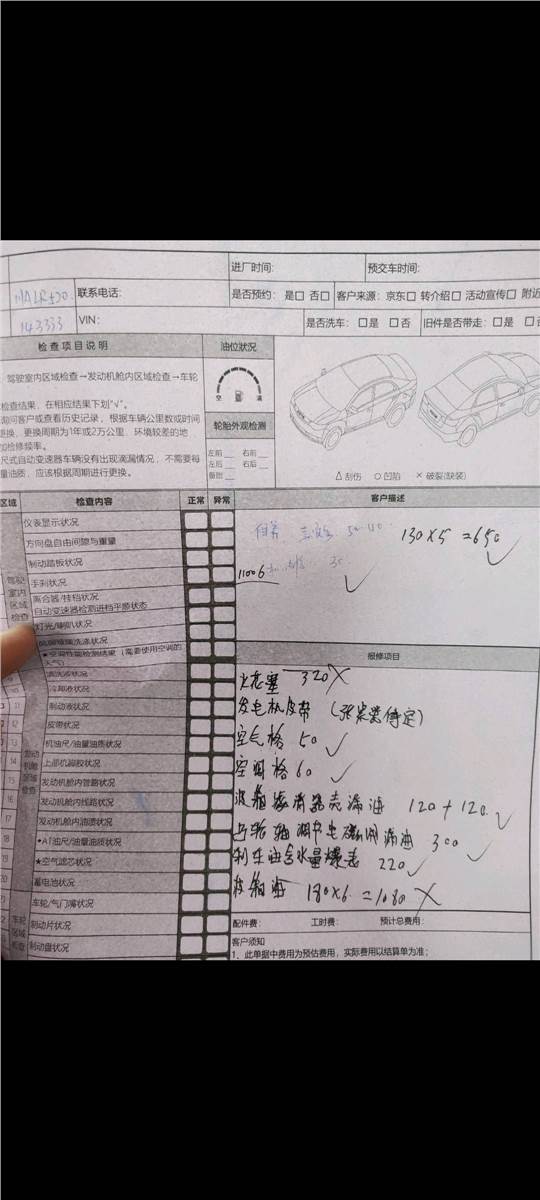 进厂时间: 预交车时间:
联系电话: 是否预约: 是□ 否□ 客户来源: 京东□ 转介绍□ 活动宣传□ 附近
143333 VIN: 是否洗车: □是 □否 旧件是否带走: □是
检查项目说明 油位状况
驾驶室内区域检查→发动机舱内区域检查→车轮
检查结果, 在相应结果下划"√"。
询问客户或查看历史记录, 根据车辆公里数或时间
更换, 更换周期为1年或2万公里, 环境较差的地
加检修频率。
尺式自动变速器车辆没有出现滴漏情况, 不需要每
量油质, 应该根据周期进行更换。
空 满
轮胎外观检测
左前 右前
左后 右后
备胎
△刮伤 ○凹陷 ×破裂(缺装)
区域 检查内容 正常 异常 客户描述
驾驶室内区域检查
仪表显示状况
方向盘自由间隙与重量
制动踏板状况
手刹状况
离合器/挂档状况
自动变速器检测进档平顺状态
灯光/喇叭状况
洗涤状况
★空调性能检测结果(需要使用空调的天气)
130×5=650 ✓
11006 ✓
报修项目
10 冷却液状况
11 制动液状况
12 皮带状况
13 机油尺/油量油质状况
14 上部机脚胶状况
15 发动机舱内管路状况
16 发动机舱内线路状况
17 发动机舱内油质状况
18 ★AT油尺/油量油质状况
19 ★空气滤芯状况
20 蓄电池状况
21 车轮/气门嘴状况
制动片状况
制动盘状况
发动机舱区域检查
车轮区域检查
火花塞 320 ×
发电机皮带 (张紧器待定)
空气格 50 ✓
空调格 60 ✓
漏油 120+120 ✓
凸轮轴调节电磁阀漏油 300 ✓
刹车油含水量爆表 220 ✓
波箱油 180×6=1080 ×
配件费: 工时费: 预计总费用:
客户须知
1、此单据中费用为预估费用, 实际费用以结算单为准;